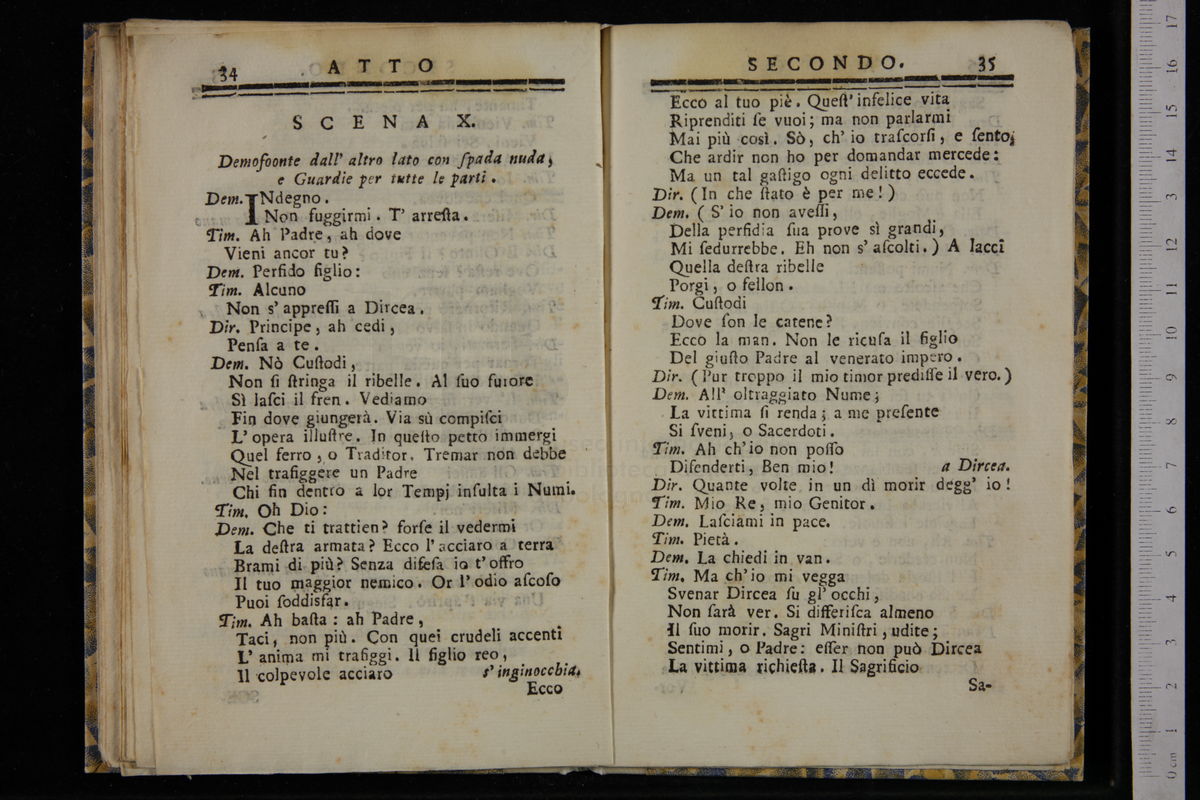 34 ATTO
SCENA X.
Demofoonte dall' altro lato con ſpada nuda,
e Guardie per tutte le parti.
Dem. INdegno.
Non fuggirmi. T' arreſta.
Tim. Ah Padre, ah dove
Vieni ancor tu?
Dem. Perfido figlio:
Tim. Alcuno
Non s' appreſſi a Dircea.
Dir. Principe, ah cedi,
Penſa a te.
Dem. Nò Cuſtodi,
Non ſi ſtringa il ribelle. Al ſuo furore
Sì laſci il fren. Vediamo
Fin dove giungerà. Via sù compiſci
L' opera illuſtre. In queſto petto immergi
Quel ferro, o Traditor. Tremar non debbe
Nel trafiggere un Padre
Chi fin dentro a lor Tempj inſulta i Numi.
Tim. Oh Dio:
Dem. Che ti trattien? forſe il vedermi
La deſtra armata? Ecco l' acciaro a terra
Brami di più? Senza difeſa io t' offro
Il tuo maggior nemico. Or l' odio aſcoſo
Puoi ſoddisfar.
Tim. Ah baſta: ah Padre,
Taci, non più. Con quei crudeli accenti
L' anima mi trafiggi. Il figlio reo,
Il colpevole acciaro s' inginocchia.
Ecco
SECONDO. 35
Ecco al tuo piè. Queſt' infelice vita
Riprenditi ſe vuoi; ma non parlarmi
Mai più così. Sò, ch' io traſcorſi, e ſento,
Che ardir non ho per domandar mercede:
Ma un tal gaſtigo ogni delitto eccede.
Dir. (In che ſtato è per me!)
Dem. (S' io non aveſſi,
Della perfidia ſua prove sì grandi,
Mi ſedurrebbe. Eh non s' aſcolti.) A lacci
Quella deſtra ribelle
Porgi, o fellon.
Tim. Cuſtodi
Dove ſon le catene?
Ecco la man. Non le ricuſa il figlio
Del giuſto Padre al venerato impero.
Dir. (Pur troppo il mio timor prediſſe il vero.)
Dem. All' oltraggiato Nume;
La vittima ſi renda; a me preſente
Si ſveni, o Sacerdoti.
Tim. Ah ch' io non poſſo
Difenderti, Ben mio! a Dircea.
Dir. Quante volte in un dì morir degg' io!
Tim. Mio Re, mio Genitor.
Dem. Laſciami in pace.
Tim. Pietà.
Dem. La chiedi in van.
Tim. Ma ch' io mi vegga
Svenar Dircea ſu gl' occhi,
Non ſarà ver. Si differiſca almeno
Il ſuo morir. Sagri Miniſtri, udite;
Sentimi, o Padre: eſſer non può Dircea
La vittima richieſta. Il Sagrificio
Sa-
0 cm 1 2 3 4 5 6 7 8 9 10 11 12 13 14 15 16 17